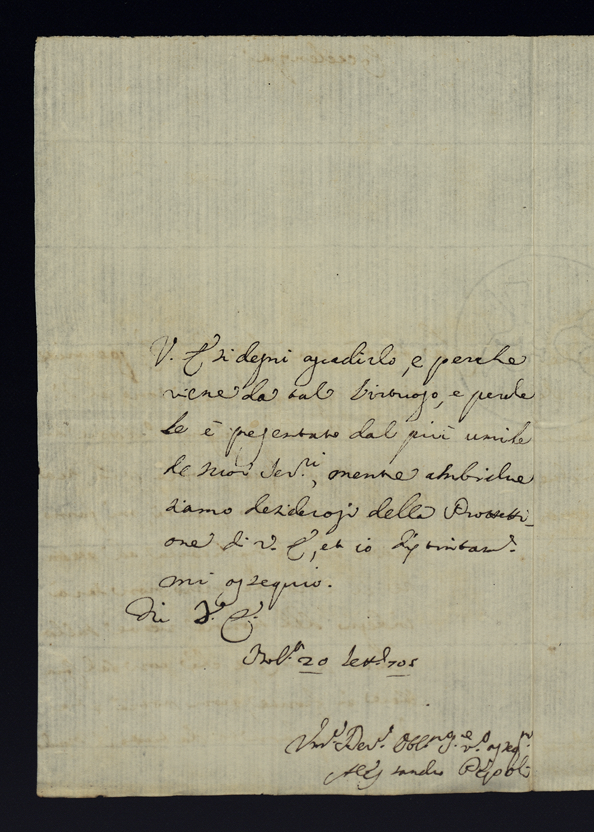 V. E. si degni agradirlo, e perche
viene da tal Virtuoso, e perche
le è presentato dal più umile
de suoi Ser.ri, mentre ambidue
siamo desiderosi della Protetti-
one di V. E., et io distintam.e
mi ossequio.
Di V. E.
Bol.a 20 Sett. 705
Um.o Dev.o Obl.mo Se.re
Alessandro Pepoli